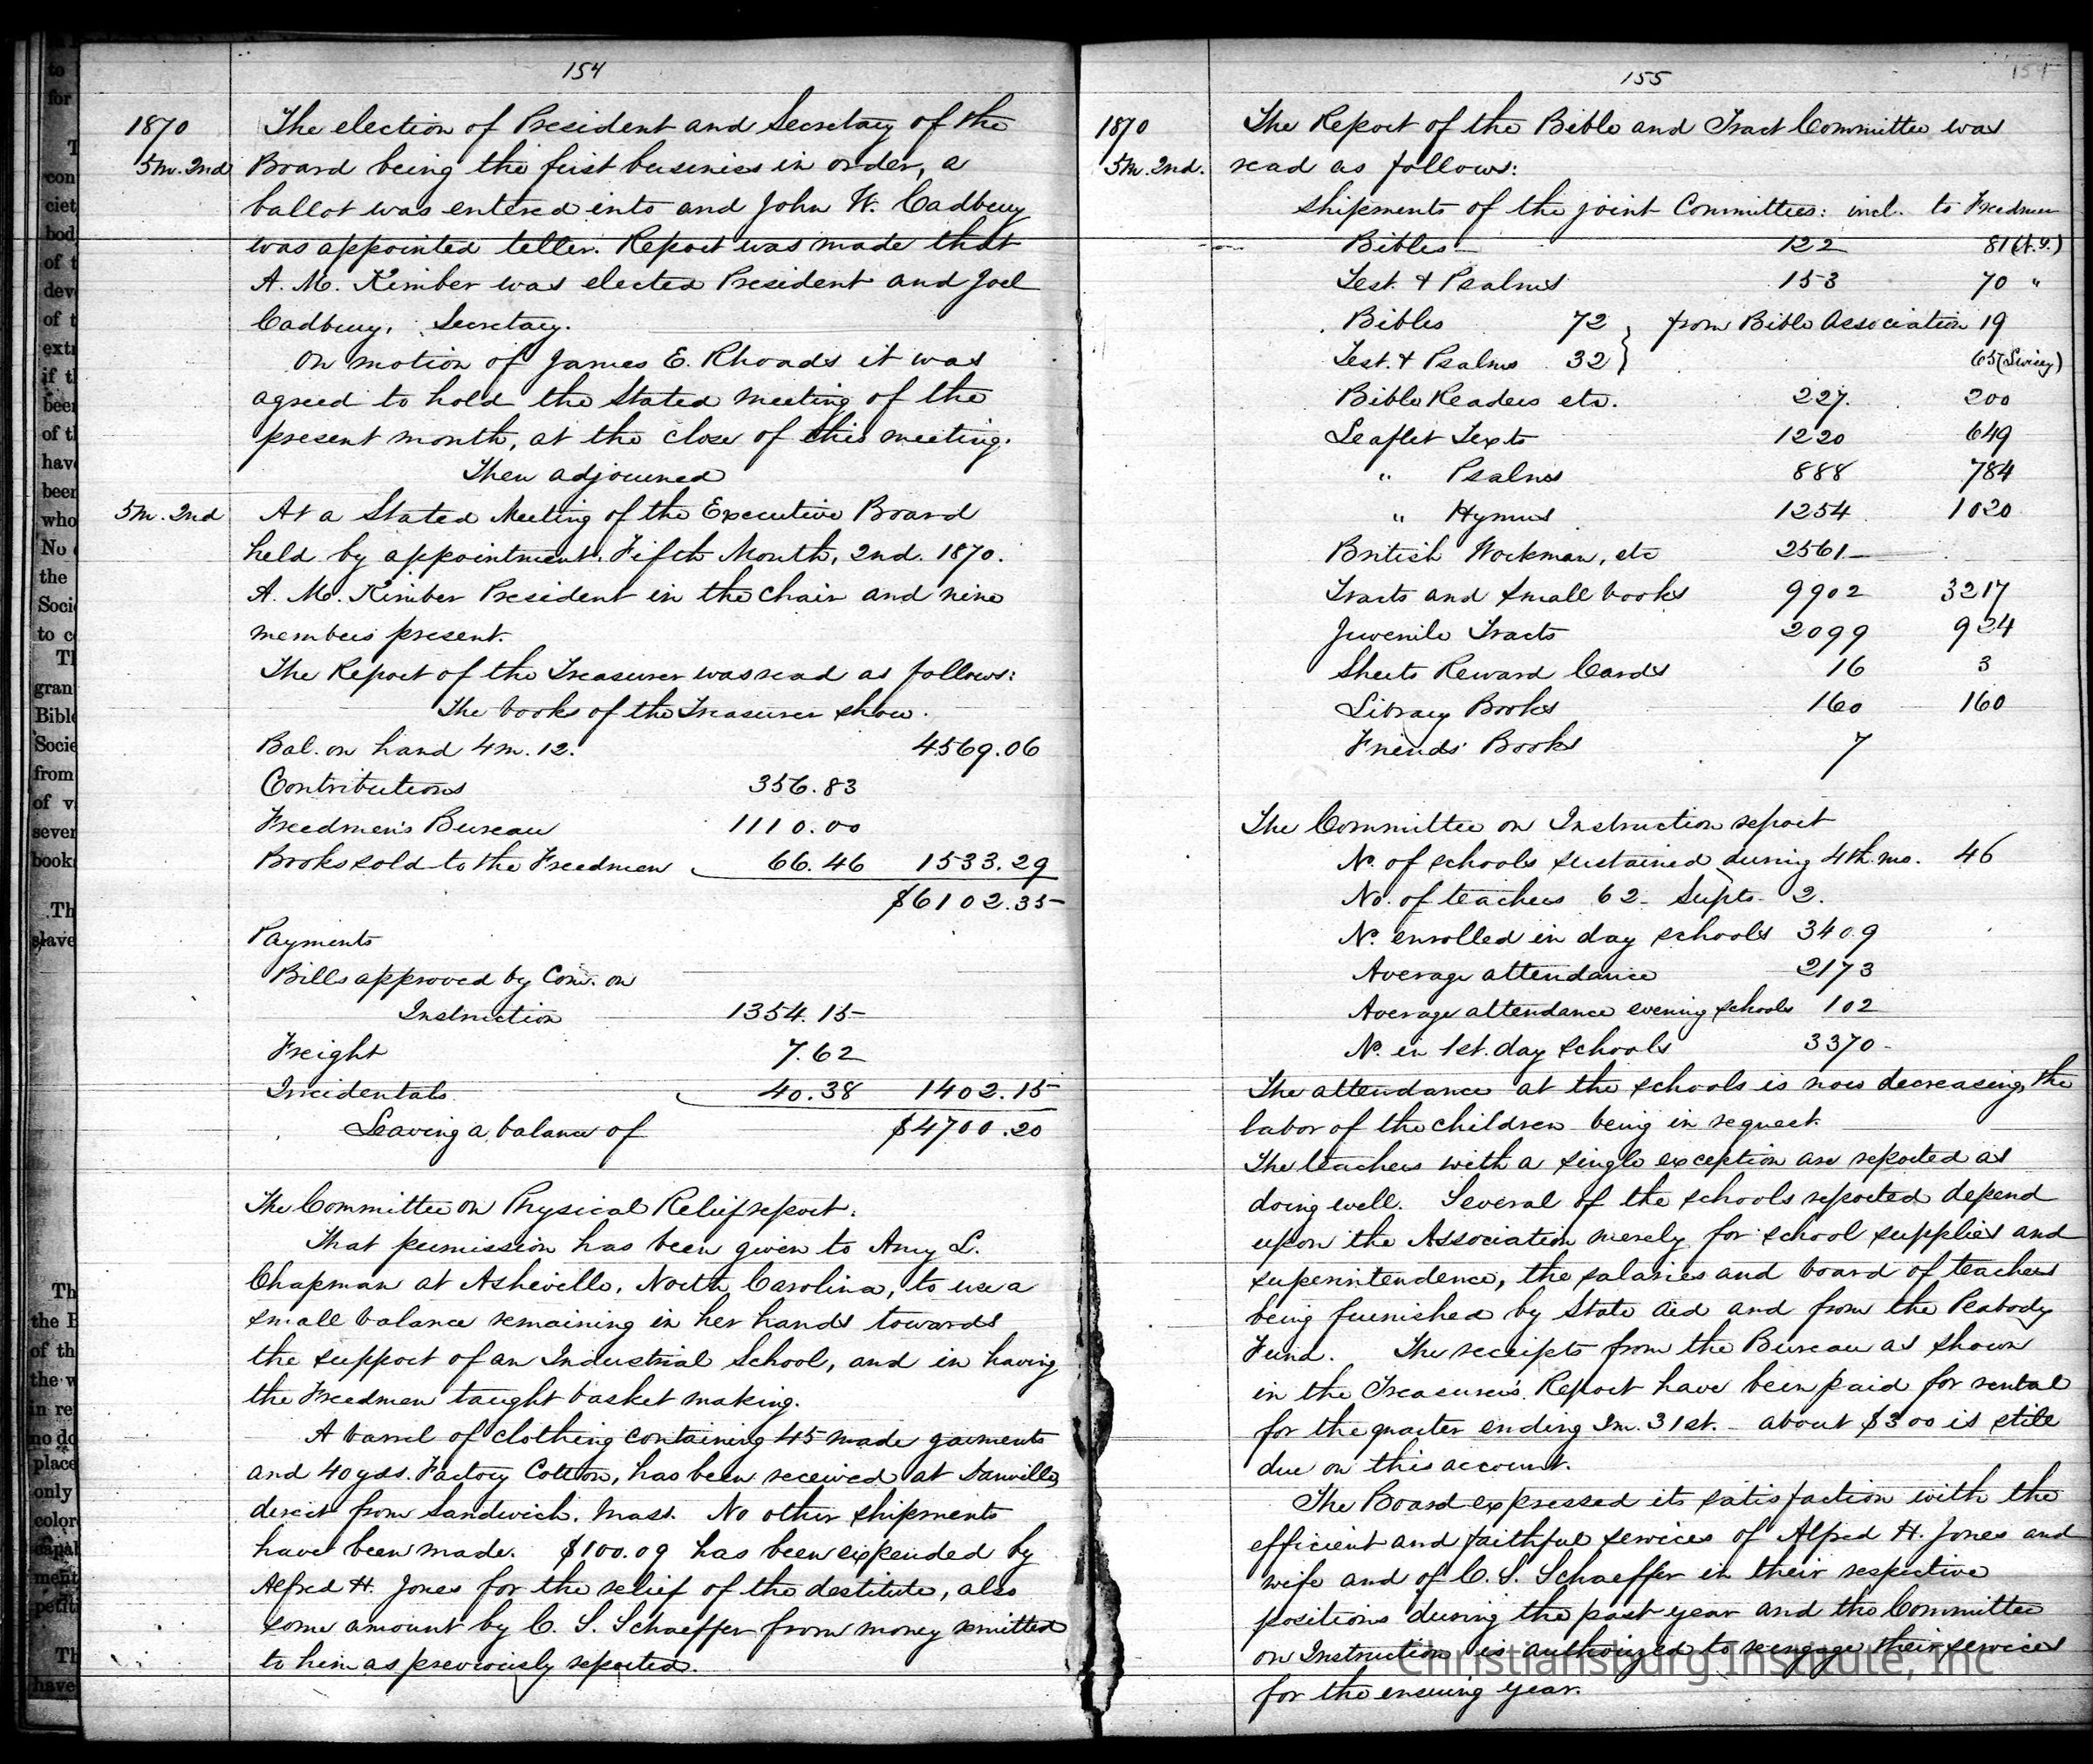 154
1870
The election of President and Secretary of the
5m. 2nd
Board being the first business in order, a
ballot was entered into and John W. Cadbury
was appointed teller. Report was made that
A. M. Kimber was elected President and Joel
Cadbury, Secretary.
On motion of James E. Rhoads it was
agreed to hold the Stated meeting of the
present month, at the close of this meeting.
Then adjourned
5m. 2nd
At a Stated Meeting of the Executive Board
held by appointment. Fifth Month, 2nd. 1870.
A. M. Kimber President in the chair and nine
members present.
The Report of the Treasurer was read as follows:
The books of the Treasurer show.
Bal. on hand 4m. 12. 4569.06
Contributions 356.83
Freedmen's Bureau 1110.00
Books sold to the Freedmen 66.46 1533.29
$6102.35
Payments
Bills approved by Com. on
Instruction 1354.15
Freight 7.62
Incidentals 40.38 1402.15
Leaving a balance of $4700.20
The Committee on Physical Relief report.
That permission has been given to Amy L.
Chapman at Asheville, North Carolina, to use a
small balance remaining in her hands towards
the support of an Industrial School, and in having
the Freedmen taught basket making.
A barrel of clothing containing 45 made garments
and 40 yds. Factory Cotton, has been received at Danville,
direct from Sandwich. Mass. No other shipments
have been made. $100.09 has been expended by
Alfred H. Jones for the relief of the destitute, also
some amount by C. S. Schaeffer from money remitted
to him as previously reported.
155
1870
The Report of the Bible and Tract Committee was
5m. 2nd.
read as follows:
Shipments of the joint Committees: incl. to Freedmen
Bibles 122 81
Test. & Psalms 153 70 "
Bibles 72 } from Bible Association 19
Test. & Psalms 32 } 65
Bible Readers etc. 227. 200
Leaflet Texts 1220 649
" Psalms 888 784
" Hymns 1254 1020
British Workman, etc 2561
Tracts and small books 9902 3217
Juvenile Tracts 2099 924
Sheets Reward Cards 16 3
Library Books 160 160
Friends' Books 7
The Committee on Instruction report
No. of schools sustained during 4th. mo. 46
No. of teachers 62 Supts. 2.
No. enrolled in day schools 3409
Average attendance 2173
Average attendance evening schools 102
No. in 1st. day schools 3370
The attendance at the schools is now decreasing, the
labor of the children being in request.
The teachers with a single exception are reported as
doing well. Several of the schools reported depend
upon the Association merely for school supplies and
superintendence, the salaries and board of teachers
being furnished by State aid and from the Peabody
Fund. The receipts from the Bureau as shown
in the Treasurer's Report have been paid for rental
for the quarter ending 3m. 31st. - about $300 is still
due on this account.
The Board expressed its satisfaction with the
efficient and faithful services of Alfred H. Jones and
wife and of C. S. Schaeffer in their respective
positions during the past year and the Committee
on Instruction is authorized to reengage their services
for the ensuing year.
Christiansburg Institute, Inc